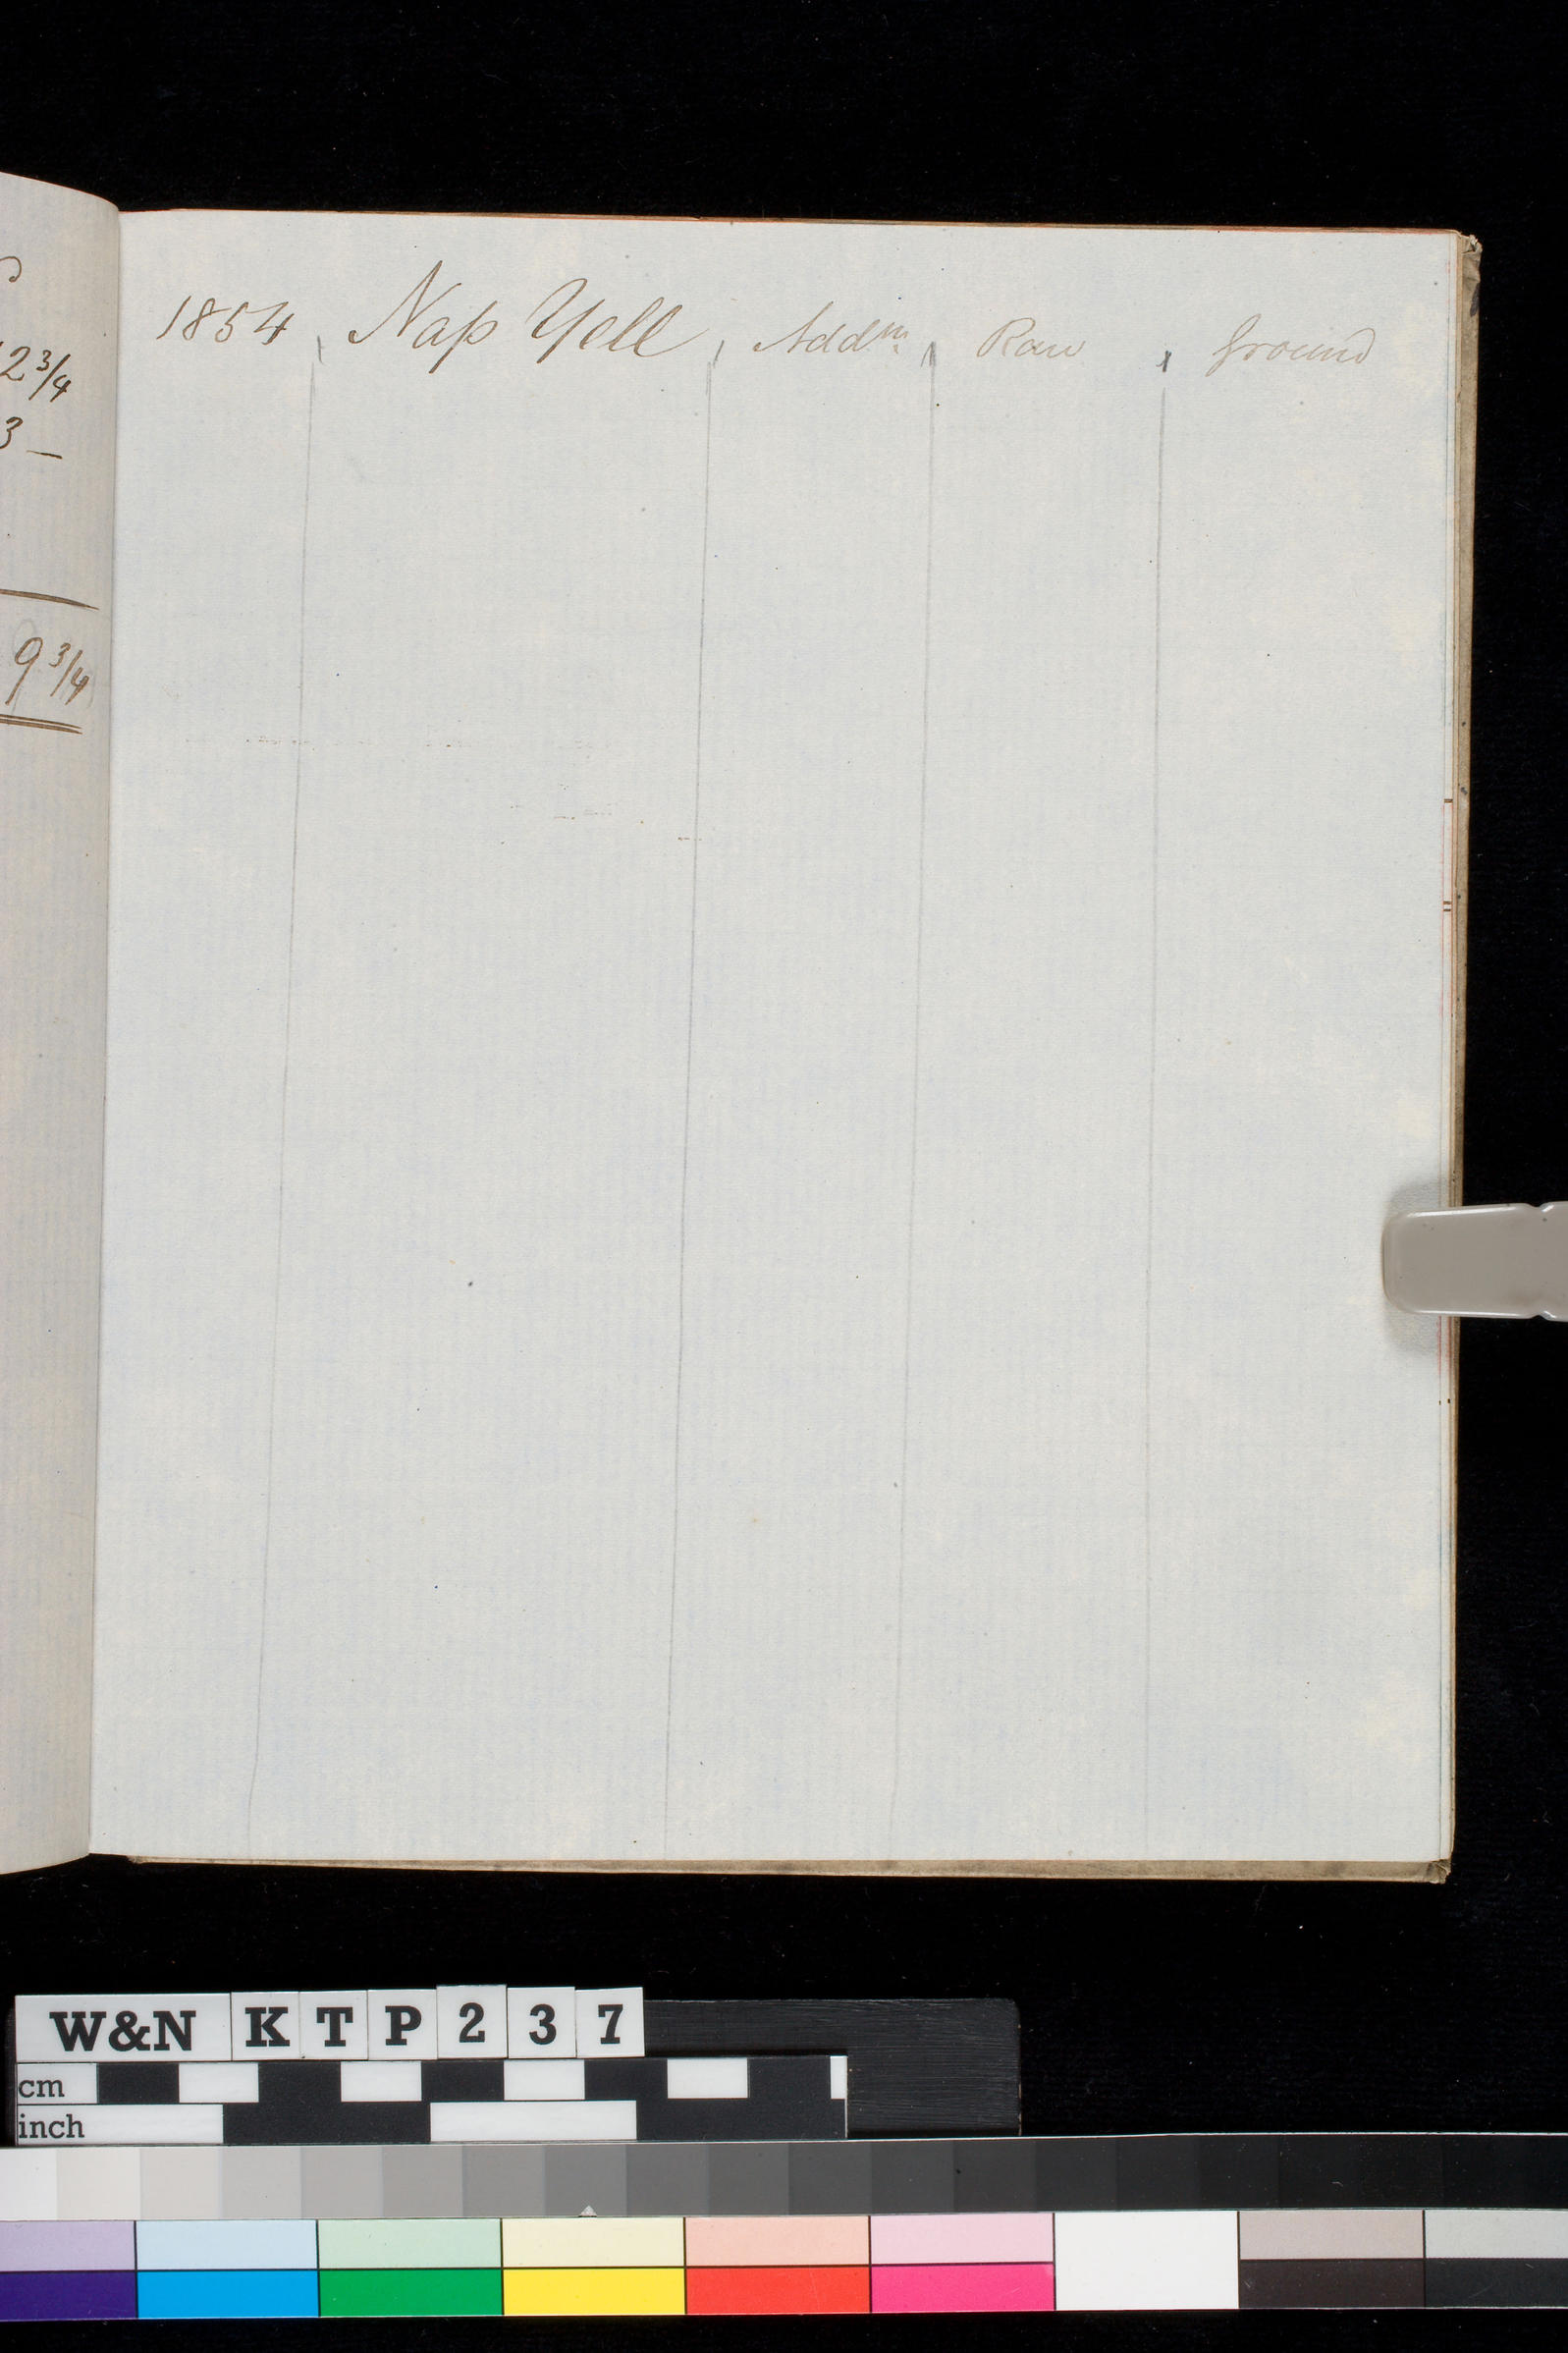 12 3/4
3 —
9 3/4
1854 Nap Yell Addm Raw Ground
W&N KTP237
cm
inch